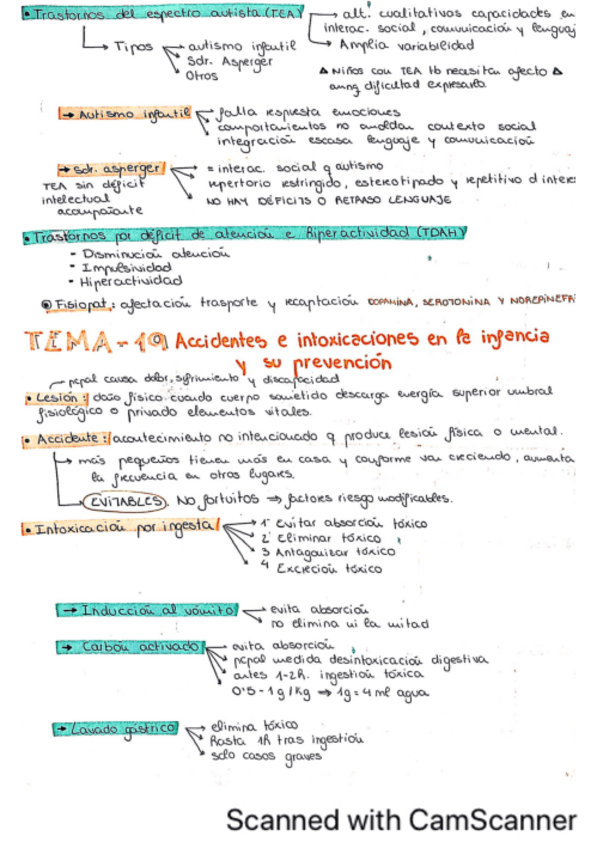 • Trastornos del espectro autista (TEA)
→ alt. cualitativos capacidades en
interac. social, comunicación y lenguaj
→ Amplia variabilidad
→ Tipos → autismo infantil
Sdr. Asperger
Otros
△ Niños con TEA tb necesitan afecto △
aunq dificultad expresarlo
→ Autismo infantil
falla respuesta emociones
comportamientos no amoldan contexto social
integración escasa lenguaje y comunicación
→ Sdr. asperger
TEA sin déficit
intelectual
acompañante
= interac. social q autismo
repertorio restringido, estereotipado y repetitivo d interes
NO HAY DÉFICITS O RETRASO LENGUAJE
• Trastornos por déficit de atención e Hiperactividad (TDAH)
- Disminución atención
- Impulsividad
- Hiperactividad
Fisiopat.: afectación trasporte y recaptación DOPAMINA, SEROTONINA Y NOREPINEFRI
TEMA-19 Accidentes e intoxicaciones en la infancia
y su prevención
pcpal causa dolor, sufrimiento y discapacidad
• Lesión: daño físico cuando cuerpo sometido descarga energía superior umbral
fisiológico o privado elementos vitales.
• Accidente: acontecimiento no intencionado q produce lesión física o mental.
→ más pequeños tienen más en casa y conforme van creciendo, aumenta
la frecuencia en otros lugares.
EVITABLES. No fortuitos ⇒ factores riesgo modificables.
• Intoxicación por ingesta
1 Evitar absorción tóxico
2 Eliminar tóxico
3 Antagonizar tóxico
4 Excreción tóxico
→ Inducción al vómito
evita absorción
no elimina ni la mitad
→ Carbón activado
evita absorción
pcpal medida desintoxicación digestiva
antes 1-2h. ingestión tóxica
0'5-1g/kg ⇒ 1g = 4 ml agua
→ Lavado gástrico
elimina tóxico
hasta 1h tras ingestión
solo casos graves
Scanned with CamScanner